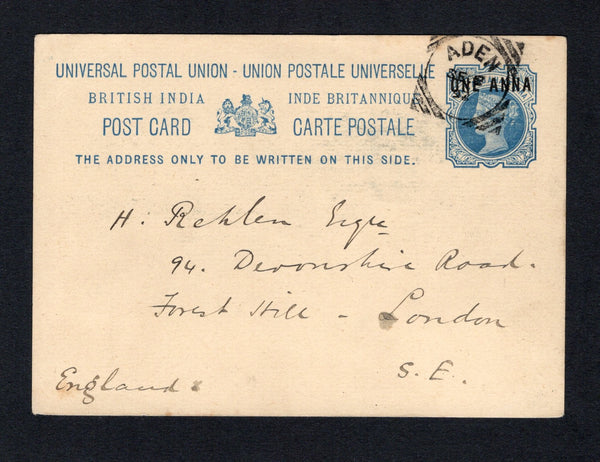 UNIVERSAL POSTAL UNION - UNION POSTALE UNIVERSELLE
BRITISH INDIA INDE BRITANNIQUE
POST CARD CARTE POSTALE
THE ADDRESS ONLY TO BE WRITTEN ON THIS SIDE.
ADEN
ONE ANNA
H: Rehlen Esqre
94. Devonshire Road.
Forest Hill - London
S.E.
England